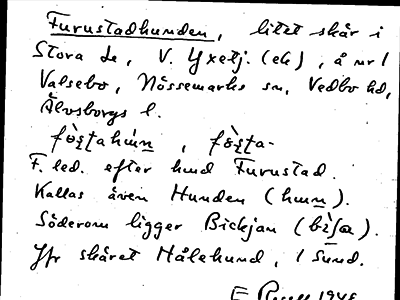 Furustadhunden, litet skär i
Stora Le, V. Yxetj. (ek), å nr 1
Valsebo, Nössemarks sn, Vedbo hd,
Älvsborgs l.
F. led. efter hmd Furustad.
Kallas även Hunden (hunn).
Söderom ligger Bickjan (
Jfr skäret Målehund, i Sund.
1948